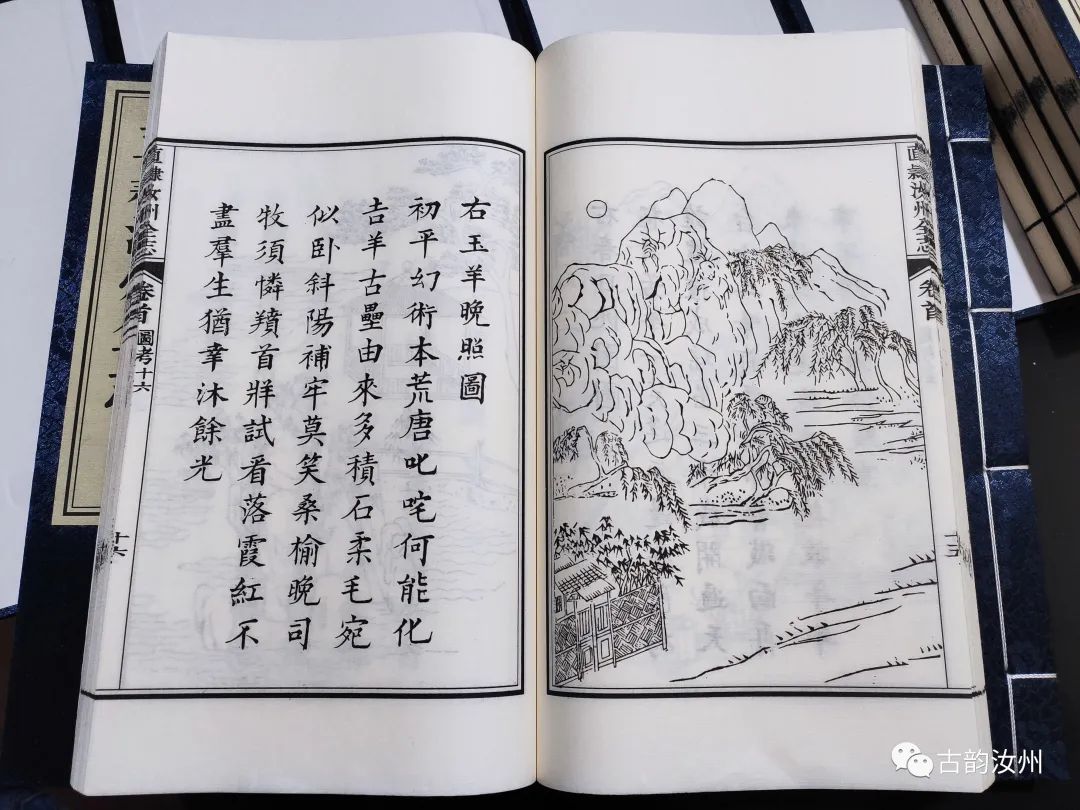 右玉羊晚照圖
初平幻術本荒唐叱咤何能化
吉羊古壘由來多積石柔毛宛
似卧斜陽補牢莫笑桑榆晚司
牧須憐羵首牂試看落霞紅不
盡羣生猶幸沐餘光
直隸汝州全志
卷首
圖考十六
十六
直隸汝州全志
卷首
古韵汝州